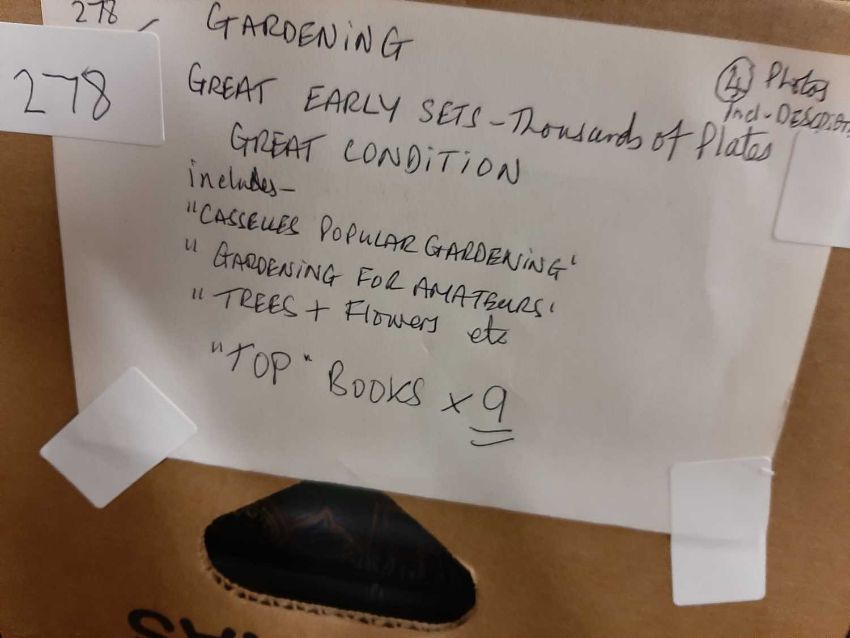 278
278
GARDENING
④ Photos
Incl-DESCRIPT
GREAT EARLY SETS - Thousands of Plates
GREAT CONDITION
includes-
"CASSELLES POPULAR GARDENING'
" GARDENING FOR AMATEURS'
" TREES + Flowers etc
"TOP" BOOKS x 9